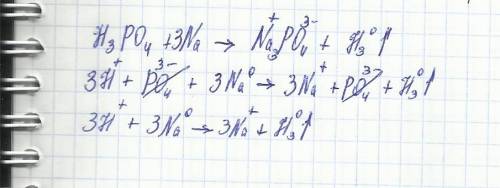 H₃PO₄ + 3Na → Na₃⁺PO₄³⁻ + H₃⁰↑
3H⁺ + PO₄³⁻ + 3Na⁰ → 3Na⁺ + PO₄³⁻ + H₃⁰↑
3H⁺ + 3Na⁰ → 3Na⁺ + H₃⁰↑